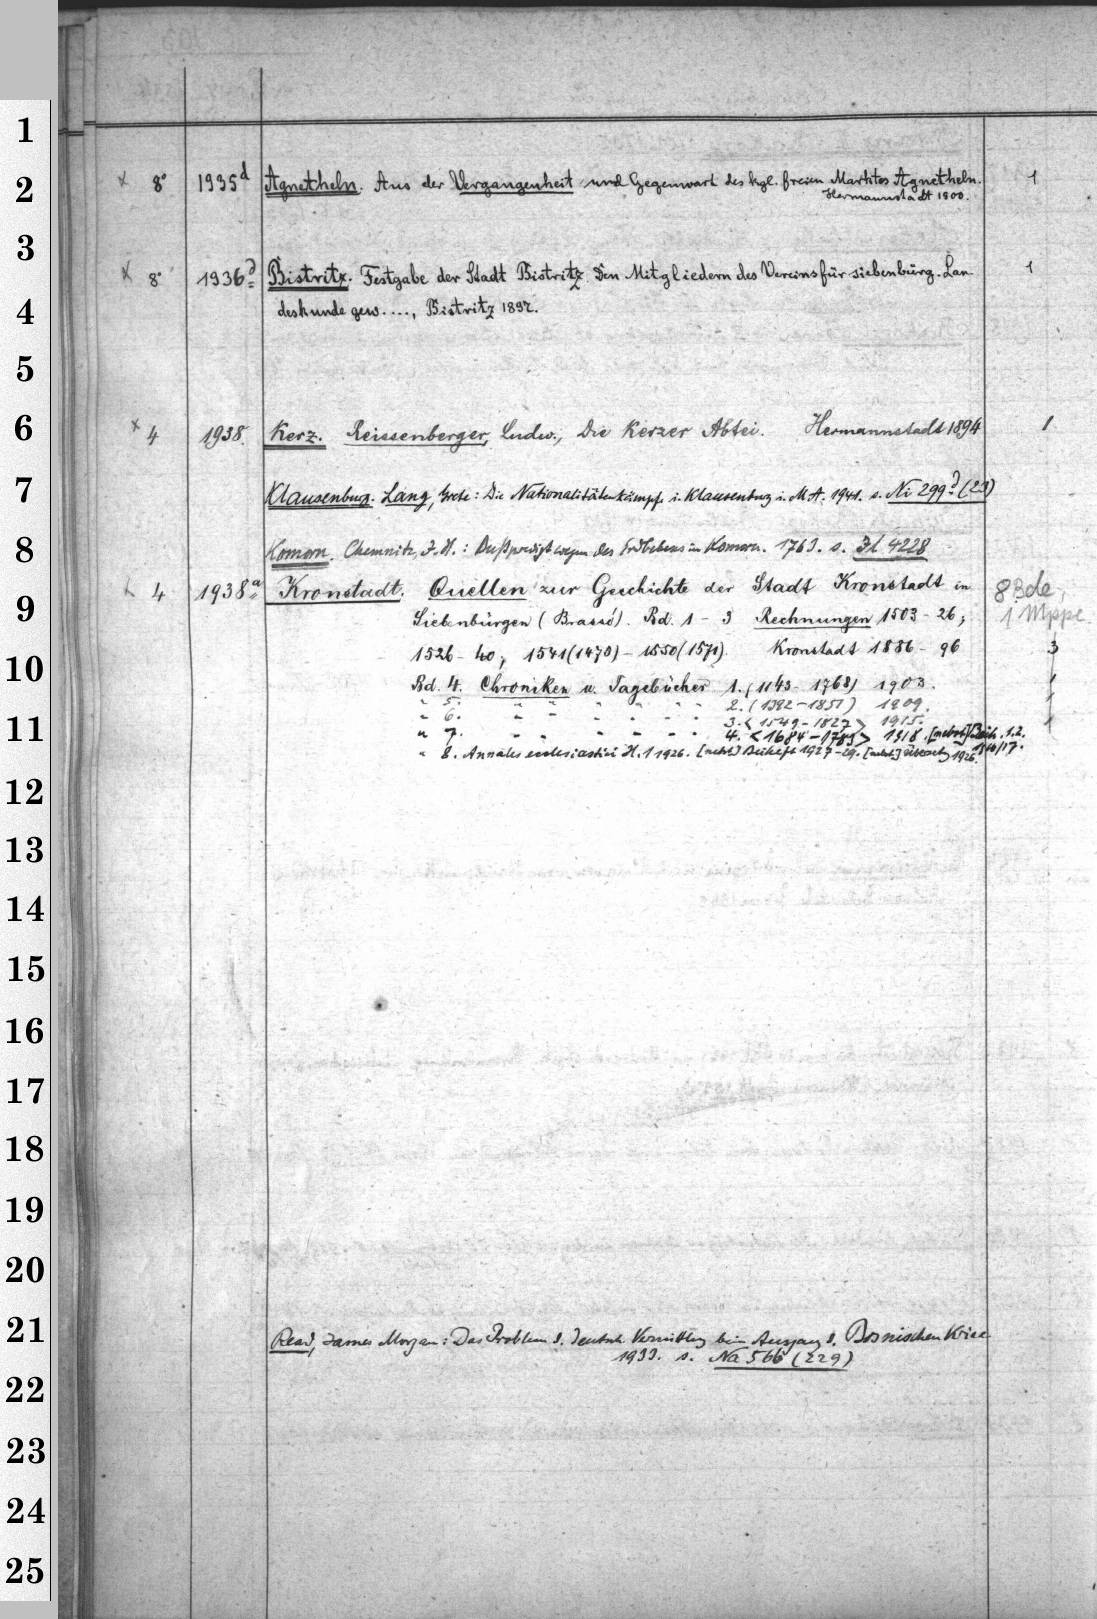 1
2
3
4
5
6
7
8
9
10
11
12
13
14
15
16
17
18
19
20
21
22
23
24
25
x 8° 1935d Agnetheln. Aus der Vergangenheit und Gegenwart des kgl. freien Marktes Agnetheln. 1
Hermannstadt 1900.
x 8° 1936d Bistritz. Festgabe der Stadt Bistritz. Den Mitgliedern des Vereins für siebenbürg. Lan- 1
deskunde gew. ...., Bistritz 1897.
x 4 1938. Kerz. Reissenberger, Ludw., Die Kerzer Abtei. Hermannstadt 1894 1
Klausenburg. Lang, Grete: Die Nationalitätenkämpfe i. Klausenburg i. M.A. 1941. s. Ni 299d (23)
Komorn. Chemnitz, J. H.: Bußpredigt wegen des Erdbebens in Komorn. 1763. s. Il 4228
x 4 1938a Kronstadt. Quellen zur Geschichte der Stadt Kronstadt in 8 Bde,
Siebenbürgen (Brassó). Bd. 1 - 3 Rechnungen 1503 - 26; 1 Mppe.
1526 - 40; 1541(1470) - 1550(1571). Kronstadt 1886 - 96 3
Bd. 4. Chroniken u. Tagebücher 1. (1143 - 1768) 1903. 1
" 5. " " " " " 2. (1392 - 1851) 1909. 1
" 6. " " " " " 3. <1549 - 1827> 1915. 1
" 7. " " " " " 4. <1684 - 1783> 1918. [nebst] Beih. 1.2.
1916/17.
" 8. Annales ecclesiastici H. 1 1926. [nebst] Beiheft 1927-29. [nebst] Übersetz 1926.
Read, James Morgan: Das Problem d. deutsch. Vermittlung beim Ausgang d. Bosnischen Krise
1933. s. Na 566 (229)